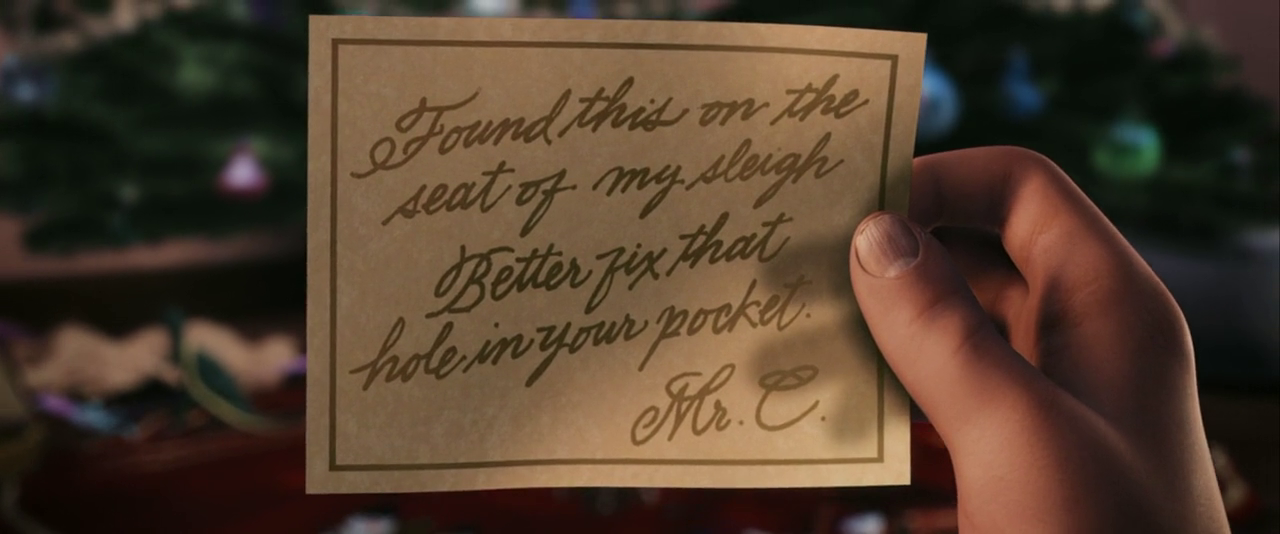 Found this on the
seat of my sleigh
Better fix that
hole in your pocket.
Mr. C.